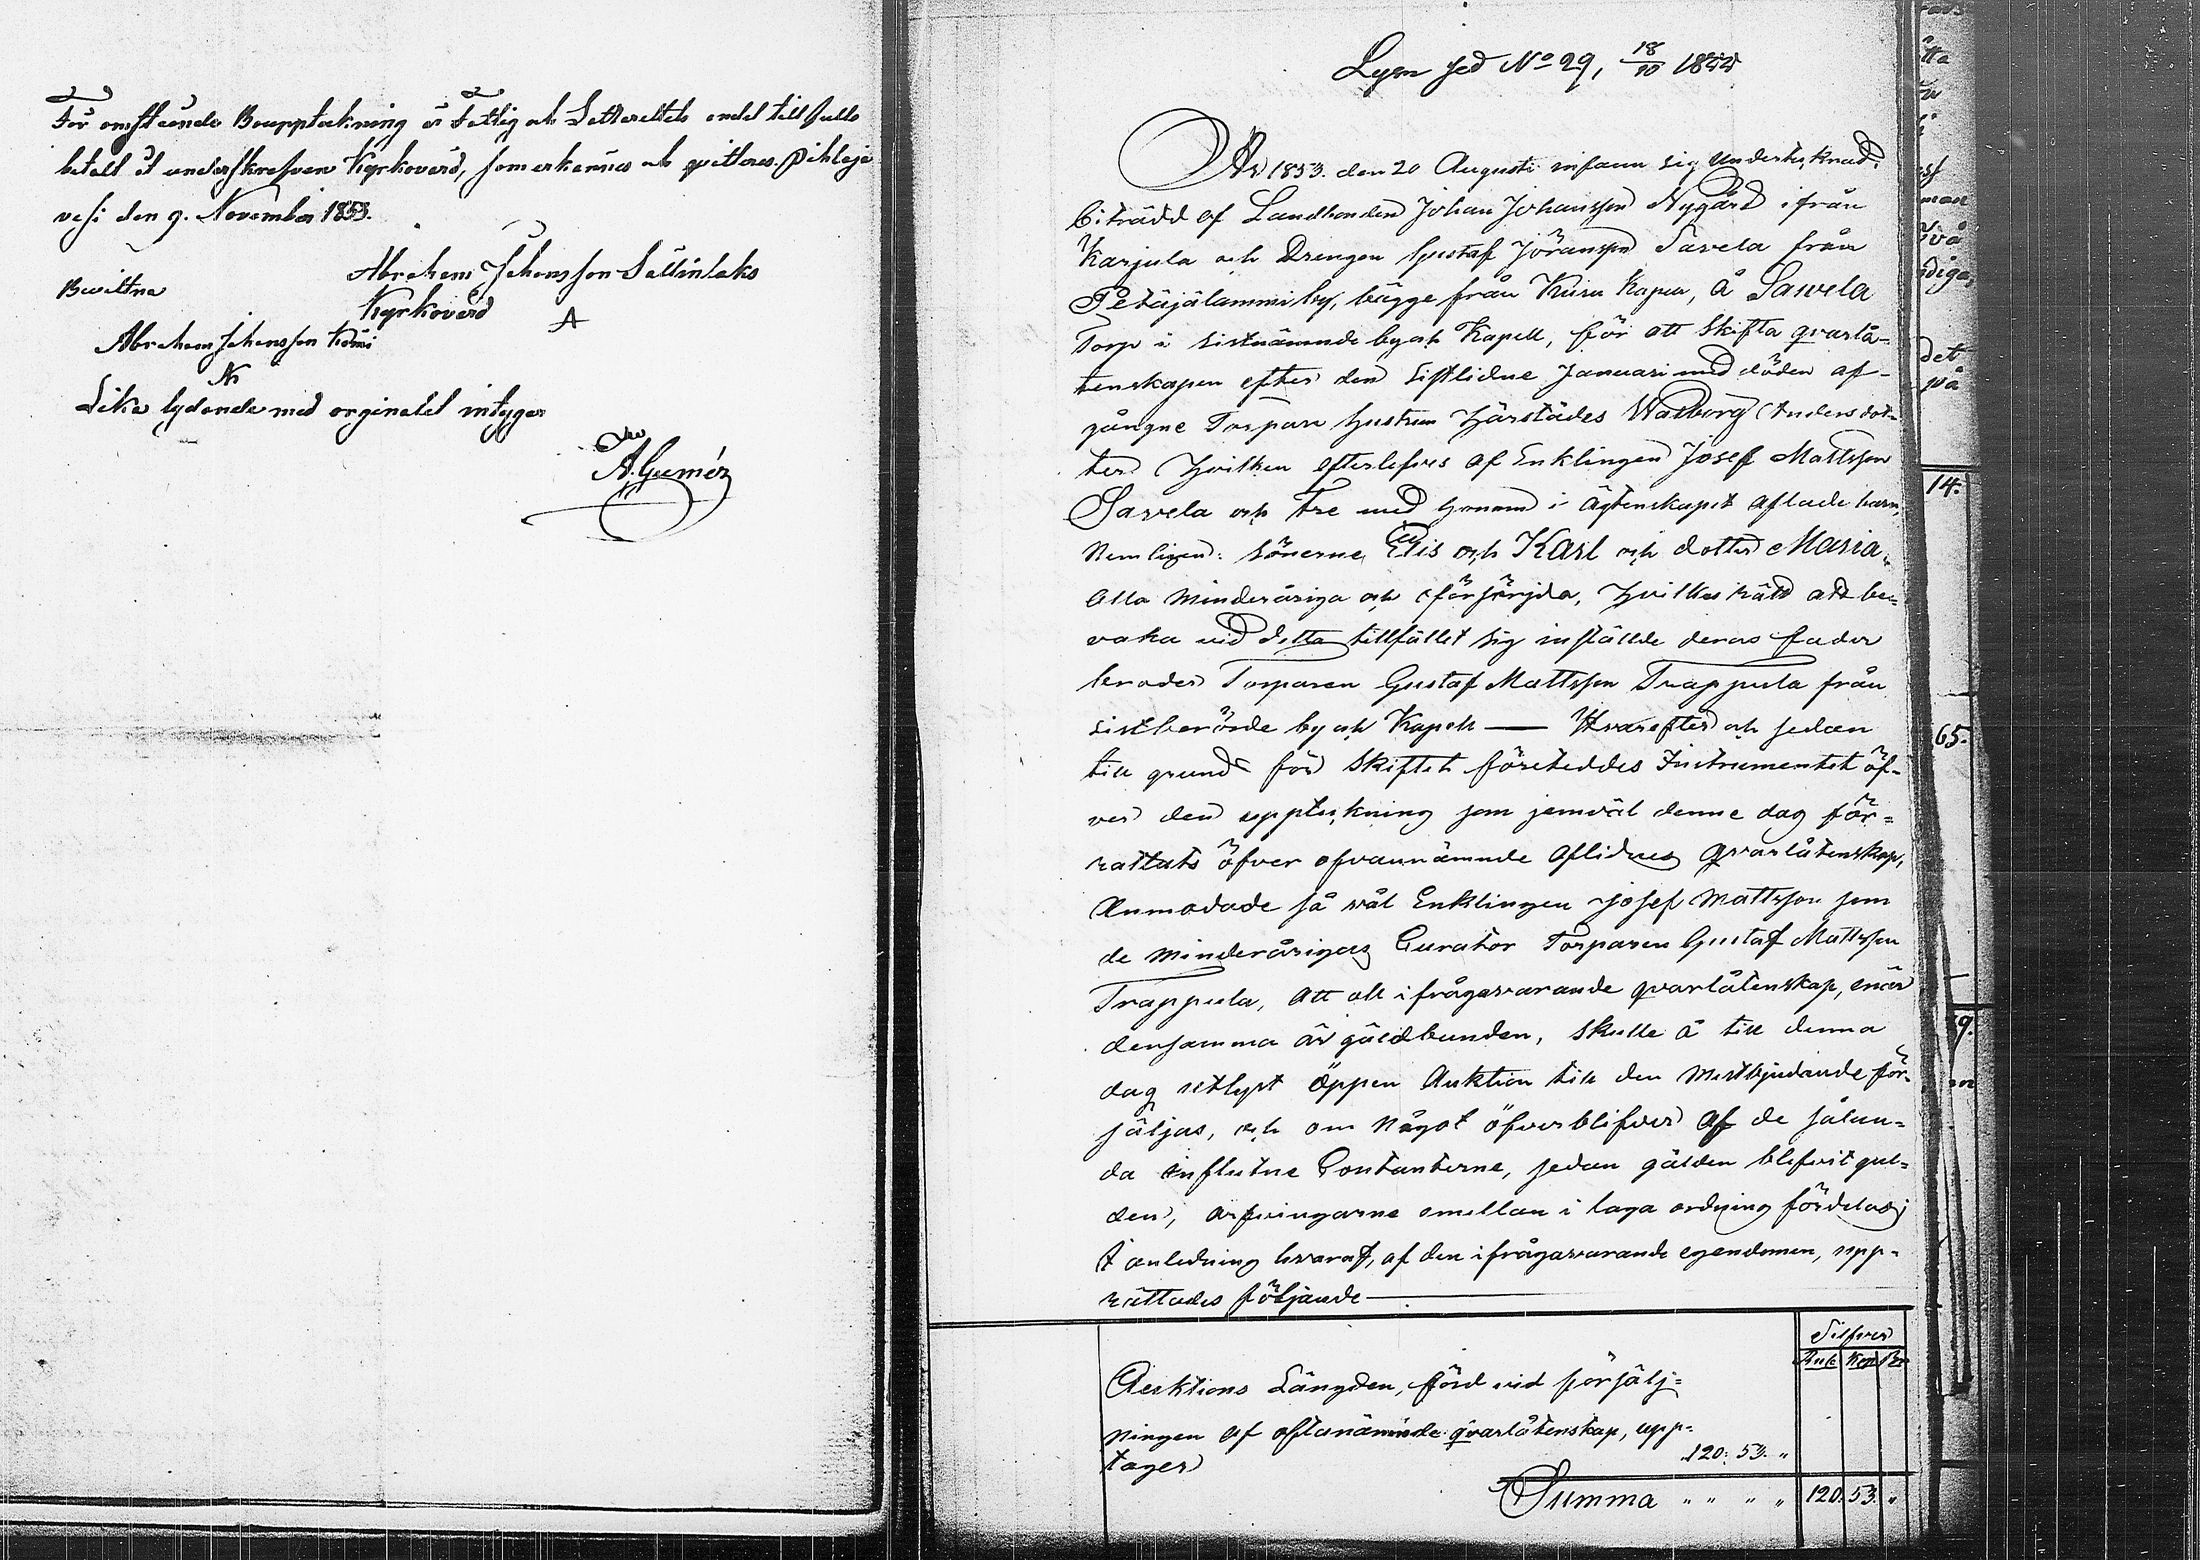 För omstående Bouppteckning är Fattig och Lettereltets andel till fullo
betalt åt underskrefven Kyrkovärd, som erkännes och qvitteras. Pihlaja
vesi den 9. November 1853.
Abraham Johansson Sallinlaks
Kyrkovärd
A
Bevittna
Abraham Johansson
Lika lydande med orginalet intygar
Lysn sed No 29, 18/10 1855
År 1853. den 20 Augusti infann sig undertecknad,
biträdd af Landbonden Johan Johansson Nygård ifrån
Karjula och Drengen Gustaf Jöransson Savela från
Petäjälammi by, bägge från Kuru Kapell, å Sawela
Torp i sistnämnde by och Kapell, för att skifta qvarlå=
tenskapen efter den sistlidne Januari med döden af-
gångne Torpare hustrun härstädes Walborg Andersdot-
ter hvilken efterlefves af Enklingen Josef Mattsson
Savela och tre med honom i ägtenskapet aflade barn,
Nemligen: sönerne Elis och Karl och dotter Maria,
Alla minderåriga och oförsörjda, hvilkas rätt att be=
vaka vid detta tillfället sig inställde deras fader
broder Torparen Gustaf Mattsson Trappula från
sistberörde by och Kapell — Hvarefter och sedan
till grund för skiftet företeddes Instrumentet öf-
ver den uppteckning som jemväl denne dag för=
rättats öfver ofvannämnde aflidnes qvarlåtenskap,
Anmodade så väl Enklingen Josef Mattsson som
de minderårigas Curator Torparen Gustaf Mattsson
Trappula, att all ifrågavarande qvarlåtenskap, enär
densamma är gäldbunden, skulle å till denna
dag utlyst öppen Auktion till den Mestbjudande för=
säljas, och om något öfverblifver af de sålun=
da influtne Contanterne, sedan gälden blifvit gul=
den, arfvingarne emellan i laga ordning fördelas;
I anledning hvaraf, af den ifrågavarande egendomen, upp-
rättades följande
Silfver
Rub Kop
Auktions Längden, förd vid försälj=
ningen af oftanämnde qvarlåtenskap, upp=
tager 120: 53. "
Summa " " " " 120. 53. "
14.
65.